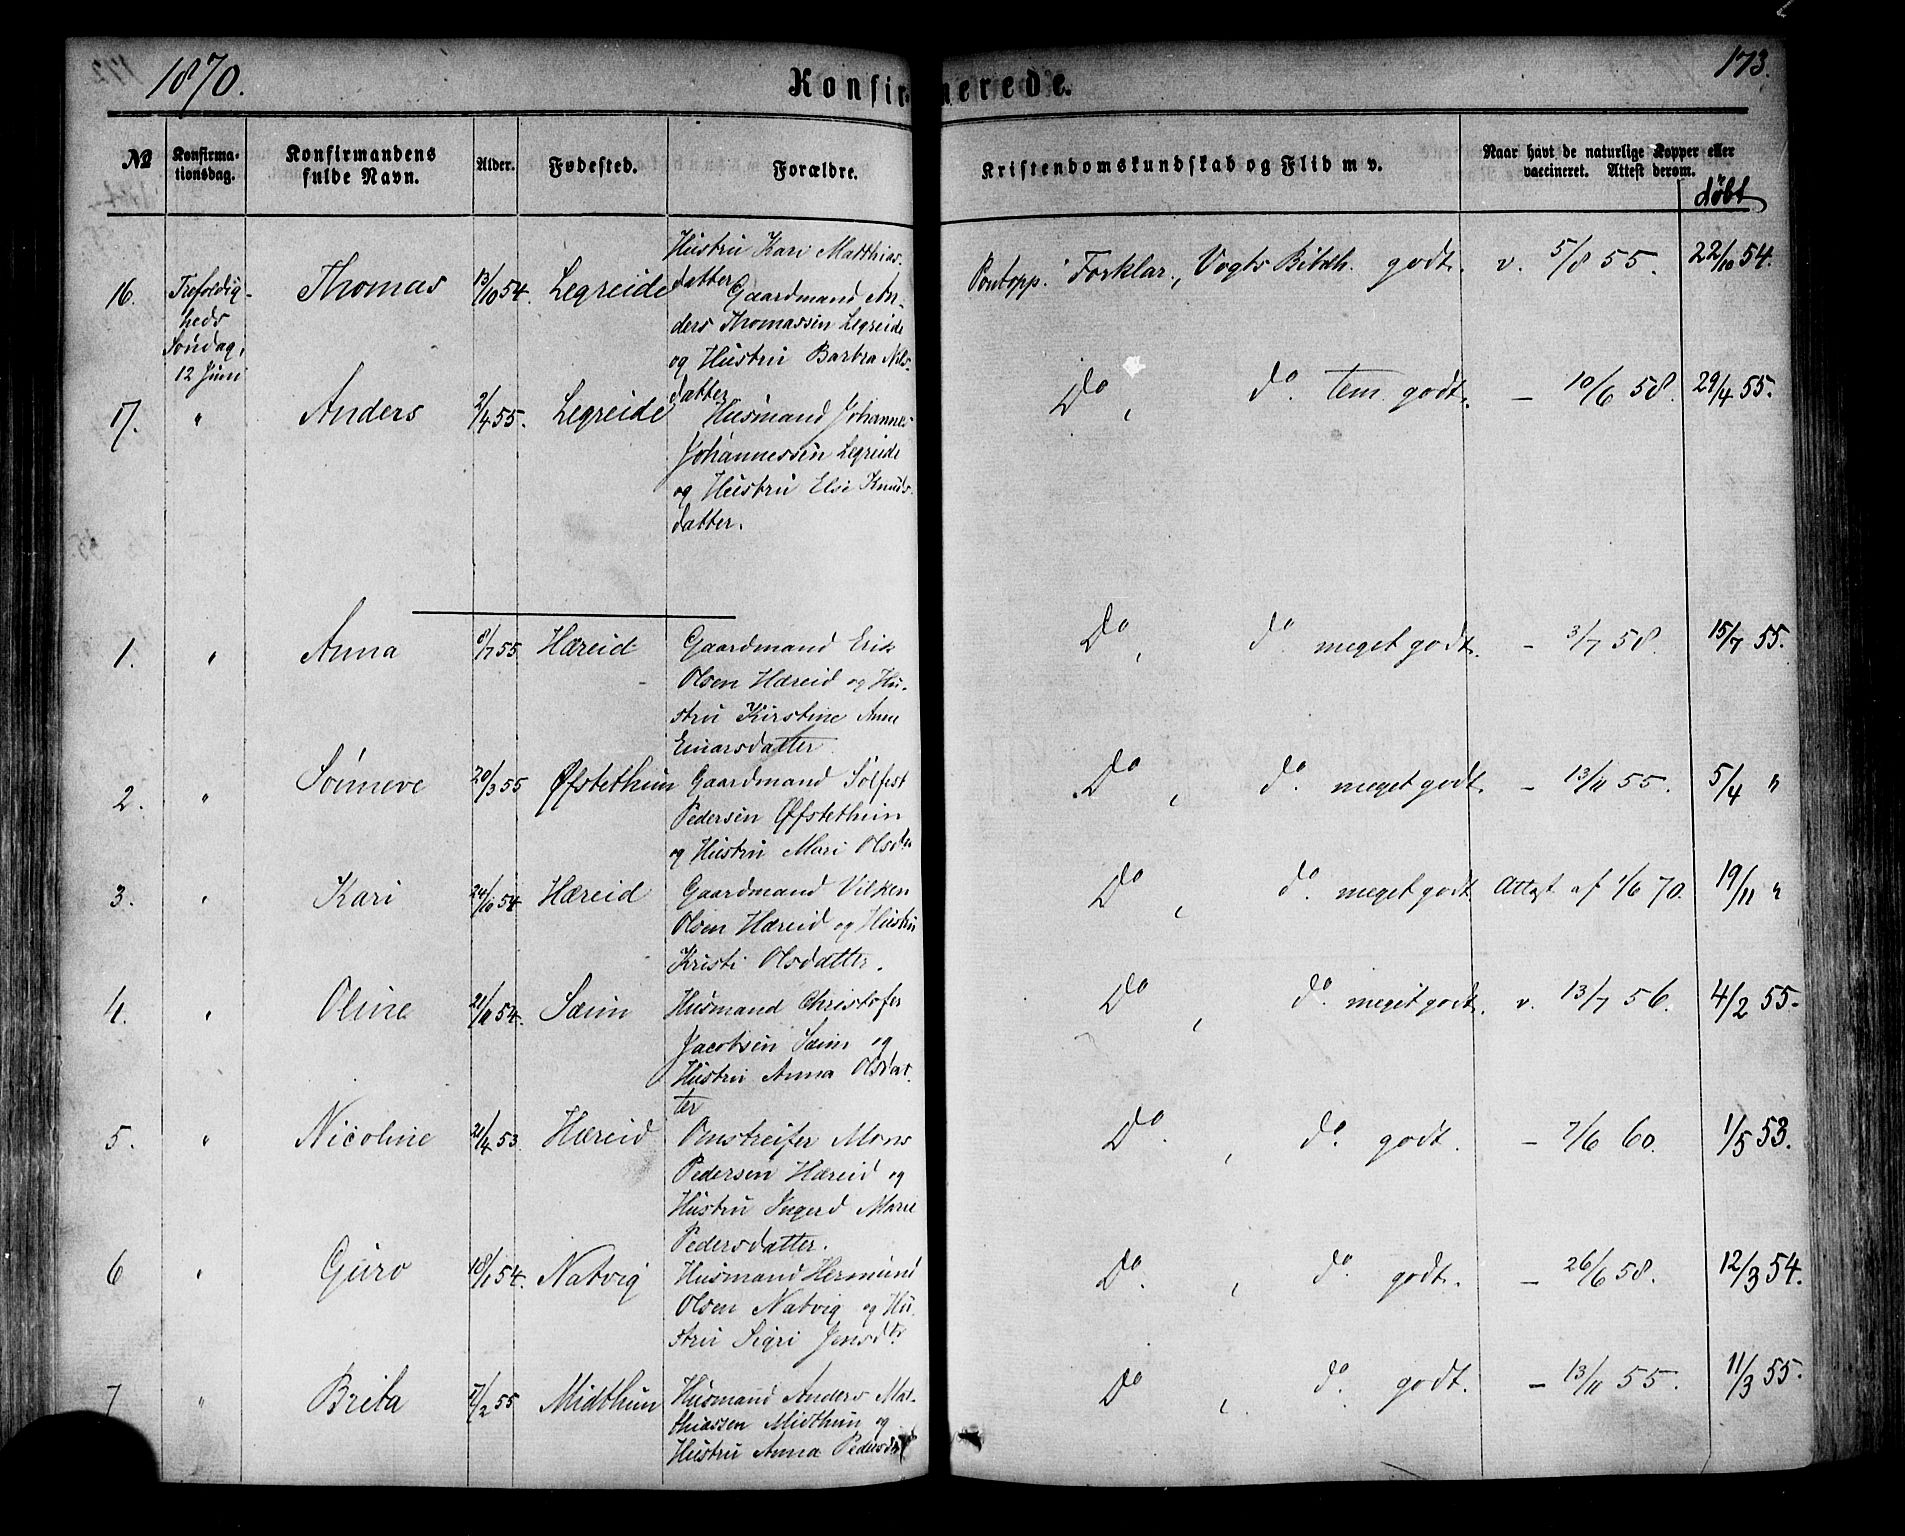 1870.
Konfirmerede.
173.
№
Konfirma-
tionsdag.
Konfirmandens
fulde Navn.
Alder.
Fødested.
Forældre.
Kristendomskundskab og Flid m v.
Naar havt de naturlige Kopper eller
vaccineret. Attest derom.
døbt
Hustru Kari Matthias-
datter
16. Trefoldig- Thomas 13/10 54. Legreide Gaardmand An- Pontopp. Forklar., Vogts Bibelh. godt. v. 5/8 55. 22/10 54.
heds ders Thomassen Legreide
Søndag, og Hustru Barbra Nils-
12 Juni datter
17. " Anders 2/4 55. Legreide Husmand Johannes Do, do. tem. godt. — 10/6 58. 29/4 55.
Johannessen Legreide
og Hustru Else Knuds-
datter.
1. " Anna 8/7 55 Hæreid Gaardmand Erik Do, do. meget godt. — 3/7 58. 15/7 55.
Olsen Hæreid og Hu-
stru Kirstine Anne
Einarsdatter
2. " Sünneve 20/3 55 Øfstethun Gaardmand Sølfest Do, do. meget godt. — 13/11 55. 5/4 "
Pedersen Øfstethun
og Hustru Mari Olsdtr
3. " Kari 24/10 54 Hæreid Gaardmand Vilken Do, do. meget godt Attest af 1/6 70. 19/11 "
Olsen Hæreid og Hustru
Kristi Olsdatter.
4. " Oline 21/11 54. Sæim Husmand Christofer Do, do. meget godt. v. 13/7 56. 4/2 55.
Jacobsen Sæim og
Hustru Anna Olsdat-
ter
5. " Nicoline 21/4 53. Hæreid Omstreifer Mons Do., do. godt. — 7/6 60. 1/5 53.
Pedersen Hæreid og
Hustru Ingerd Marie
Pedersdatter.
6 " Guro 18/1 54. Natvig Husmand Hermund Do., do. godt. — 26/6 58. 12/3 54.
Olsen Natvig og Hu-
stru Sigri Jonsdtr
7 " Brita 17/2 55 Midthun Husmand Anders Mat- Do, do. godt. — 13/11 55. 11/3 55.
thiassen Midthun og
Hustru Anna Pedersdtr